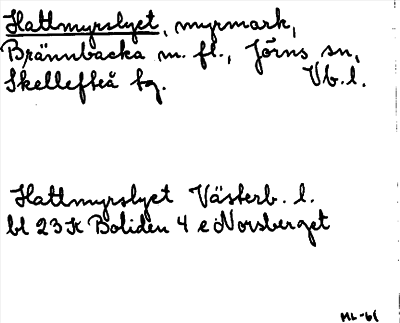 Hattmyrslyet, myrmark,
Brännbacka m. fl., Jörns sn,
Skellefteå tg. Vb. l.
Hattmyrslyet Västerb. l.
bl 23 K Boliden 4 e Norsberget
ML-61